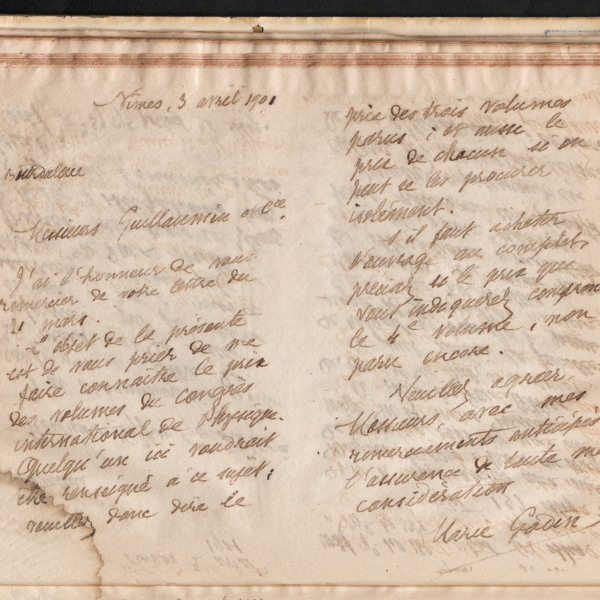 Nîmes, 3 avril 1901
Messieurs Guillaumin et Cie.
J'ai l'honneur de vous
remercier de votre lettre du
21 mars.
L'objet de la présente
est de vous prier de me
faire connaître le prix
des volumes du Congrès
international de Physique.
Quelqu'un ici voudrait
être renseigné à ce sujet;
veuillez donc dire le
prix des trois volumes
parus ; et aussi le
prix de chacun si on
peut se les procurer
isolément.
S'il faut acheter
l'ouvrage au complet,
préciser si le prix que
vous indiquerez comprend
le 4e volume, non
paru encore.
Veuillez agréer,
Messieurs, avec mes
remerciements anticipés
l'assurance de toute ma
considération
Marie Godin